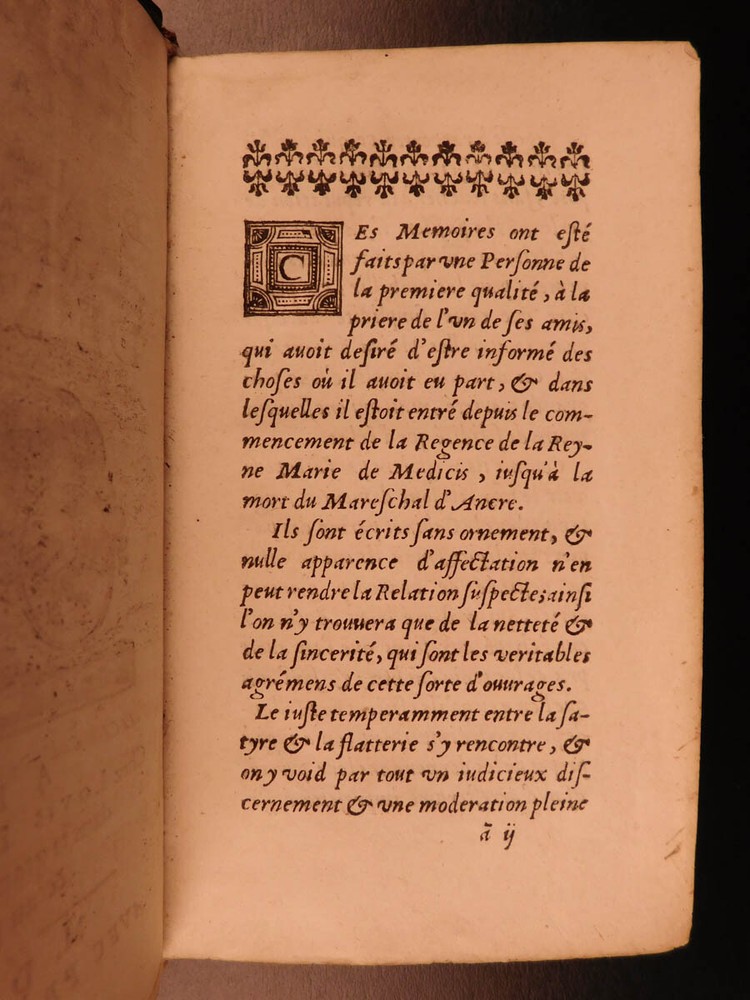 CEs Memoires ont esté
faits par vne Personne de
la premiere qualité, à la
priere de l'vn de ses amis,
qui auoit desiré d'estre informé des
choses où il auoit eu part, & dans
lesquelles il estoit entré depuis le com-
mencement de la Regence de la Rey-
ne Marie de Medicis, iusqu'à la
mort du Mareschal d'Ancre.
Ils sont écrits sans ornement, &
nulle apparence d'affectation n'en
peut rendre la Relation suspecte; ainsi
l'on n'y trouuera que de la netteté &
de la sincerité, qui sont les veritables
agrémens de cette sorte d'ouurages.
Le iuste temperamment entre la sa-
tyre & la flatterie s'y rencontre, &
on y void par tout vn iudicieux dis-
cernement & vne moderation pleine
ã ij